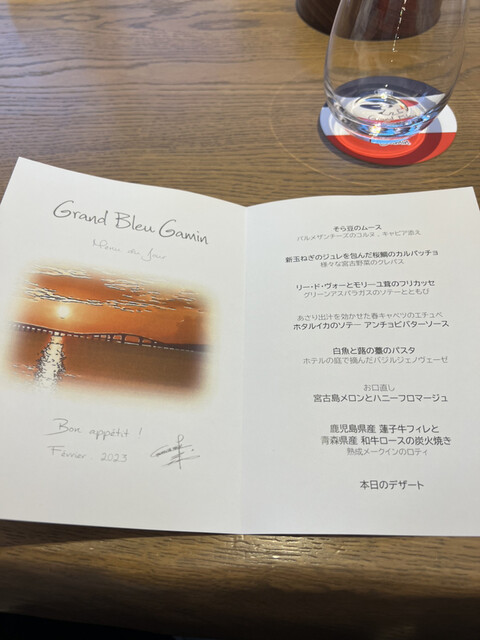 Grand Bleu Gamin
Menu du Jour
Bon appétit !
Février 2023
そら豆のムース
パルメザンチーズのコルヌ、キャビア添え
新玉ねぎのジュレを包んだ桜鯛のカルパッチョ
様々な宮古野菜のクレパス
リー・ド・ヴォーとモリーユ茸のフリカッセ
グリーンアスパラガスのソテーとともに
あさり出汁を効かせた春キャベツのエチュベ
ホタルイカのソテー アンチョビバターソース
白魚と蕗の薹のパスタ
ホテルの庭で摘んだバジルジェノヴェーゼ
お口直し
宮古島メロンとハニーフロマージュ
鹿児島県産 蓮子牛フィレと
青森県産 和牛ロースの炭火焼き
熟成メークインのロティ
本日のデザート